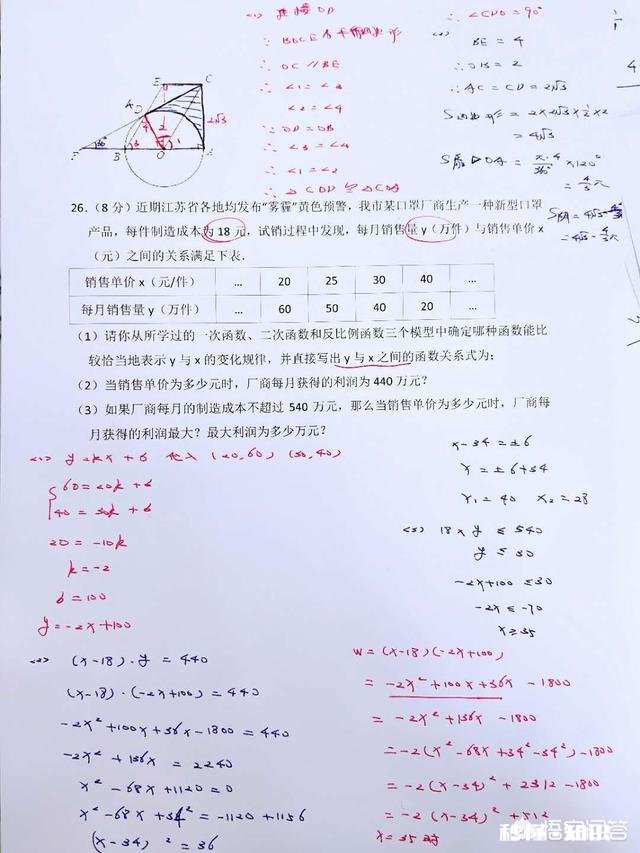 <1> 连接OD
∴ BOCE为平行四边形
∴ OC // BE
∴ <1 = <3
<2 = <4
∵ OD = OB
∴ <3 = <4
∴ <1 = <2
∴ △COD ≌ △COA
∴ <CDO = 90°
<2> BE = 4
∴ OB = 2
∴ AC = CD = 2√3
S四边形 = 2×2√3×1/2×2
= 4√3
S扇DOA = π·4/360° ×120°
= 4/3π
S阴 = 4√3 - 4/3π
= 4√3 - 4/3π
E C
D
2√3
F B O A
30° 3 4 2 1
26.（8 分）近期江苏省各地均发布“雾霾”黄色预警，我市某口罩厂商生产一种新型口罩
产品，每件制造成本为 18 元，试销过程中发现，每月销售量 y（万件）与销售单价 x
（元）之间的关系满足下表．
销售单价 x（元/件） … 20 25 30 40 …
每月销售量 y（万件） … 60 50 40 20 …
（1）请你从所学过的一次函数、二次函数和反比例函数三个模型中确定哪种函数能比
较恰当地表示 y 与 x 的变化规律，并直接写出 y 与 x 之间的函数关系式为：
（2）当销售单价为多少元时，厂商每月获得的利润为 440 万元？
（3）如果厂商每月的制造成本不超过 540 万元，那么当销售单价为多少元时，厂商每
月获得的利润最大？最大利润为多少万元？
<1> y=kx+b 代入 (20,60) (30,40)
60=20k+b
40=30k+b
20=-10k
k=-2
b=100
y=-2x+100
<2> (x-18)·y = 440
(x-18)·(-2x+100) = 440
-2x²+100x+36x-1800 = 440
-2x²+136x = 2240
x²-68x+1120=0
x²-68x+34² = -1120+1156
(x-34)² = 36
x-34=±6
x=±6+34
x₁=40 x₂=28
<3> 18×y ≤ 540
y ≤ 30
-2x+100 ≤ 30
-2x ≤ -70
x ≥ 35
W=(x-18)(-2x+100)
= -2x²+100x+36x-1800
= -2x²+136x-1800
= -2(x²-68x+34²-34²)-1800
= -2(x-34)²+2312-1800
= -2(x-34)²+512
x=35时
悟空问答
秒懂知识